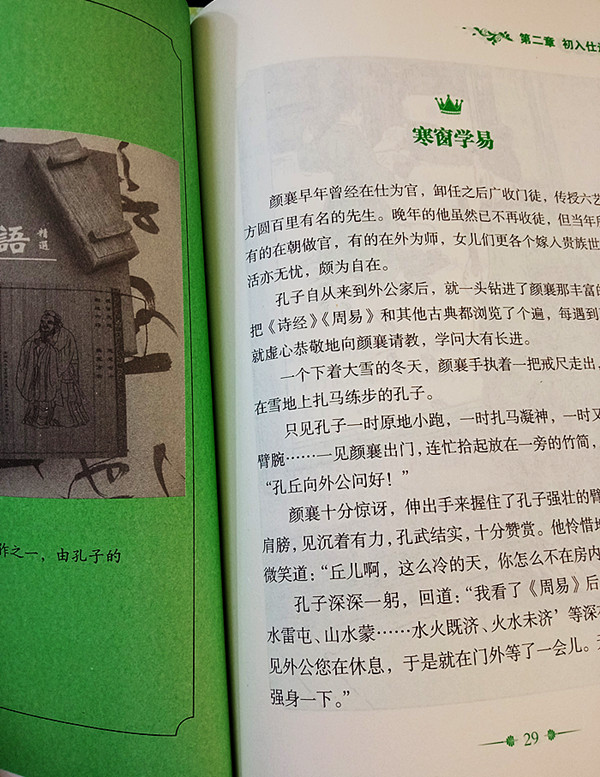 語
精選
作之一，由孔子的
第二章 初入仕
寒窗学易
颜襄早年曾经在仕为官，卸任之后广收门徒，传授六艺
方圆百里有名的先生。晚年的他虽然已不再收徒，但当年
有的在朝做官，有的在外为师，女儿们更各个嫁入贵族世
活亦无忧，颇为自在。
孔子自从来到外公家后，就一头钻进了颜襄那丰富的
把《诗经》《周易》和其他古典都浏览了个遍，每遇到
就虚心恭敬地向颜襄请教，学问大有长进。
一个下着大雪的冬天，颜襄手执着一把戒尺走出，
在雪地上扎马练步的孔子。
只见孔子一时原地小跑，一时扎马凝神，一时又
臂腕……一见颜襄出门，连忙拾起放在一旁的竹简，
“孔丘向外公问好！”
颜襄十分惊讶，伸出手来握住了孔子强壮的臂
肩膀，见沉着有力，孔武结实，十分赞赏。他怜惜地
微笑道：“丘儿啊，这么冷的天，你怎么不在房内
孔子深深一躬，回道：“我看了《周易》后
水雷屯、山水蒙……水火既济、火水未济’等深
见外公您在休息，于是就在门外等了一会儿。
强身一下。”
29